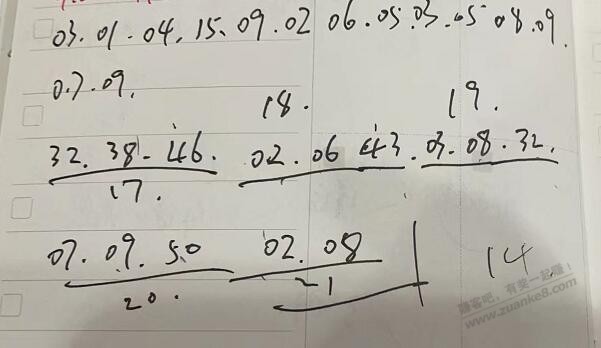 03. 01. 04. 15. 09. 02 06. 05. 03. 05 08. 09.
07. 09.
18. 19.
32. 38. 46. 02. 06 43. 03. 08. 32.
17.
07. 09. 50 02. 08 14
20. 21
www.zuanke8.com